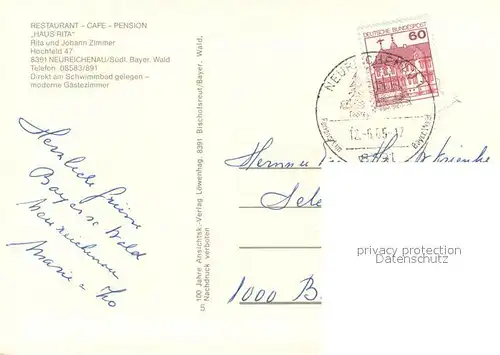 RESTAURANT – CAFE – PENSION
„HAUS RITA"
Rita und Johann Zimmer
Hochfeld 47
8391 NEUREICHENAU/Südl. Bayer. Wald
Telefon 08583/891
Direkt am Schwimmbad gelegen –
moderne Gästezimmer
Herzliche Grüße
Bayers. Wald
Neureichenau
Marie
100 Jahre Ansichtsk.-Verlag Löwenhag, 8391 Bischofsreut/Bayer. Wald,
Nachdruck verboten
5
DEUTSCHE BUNDESPOST
60
NEUREICHENAU
12.-6.85-17
8391
1000 B
privacy protection
Datenschutz